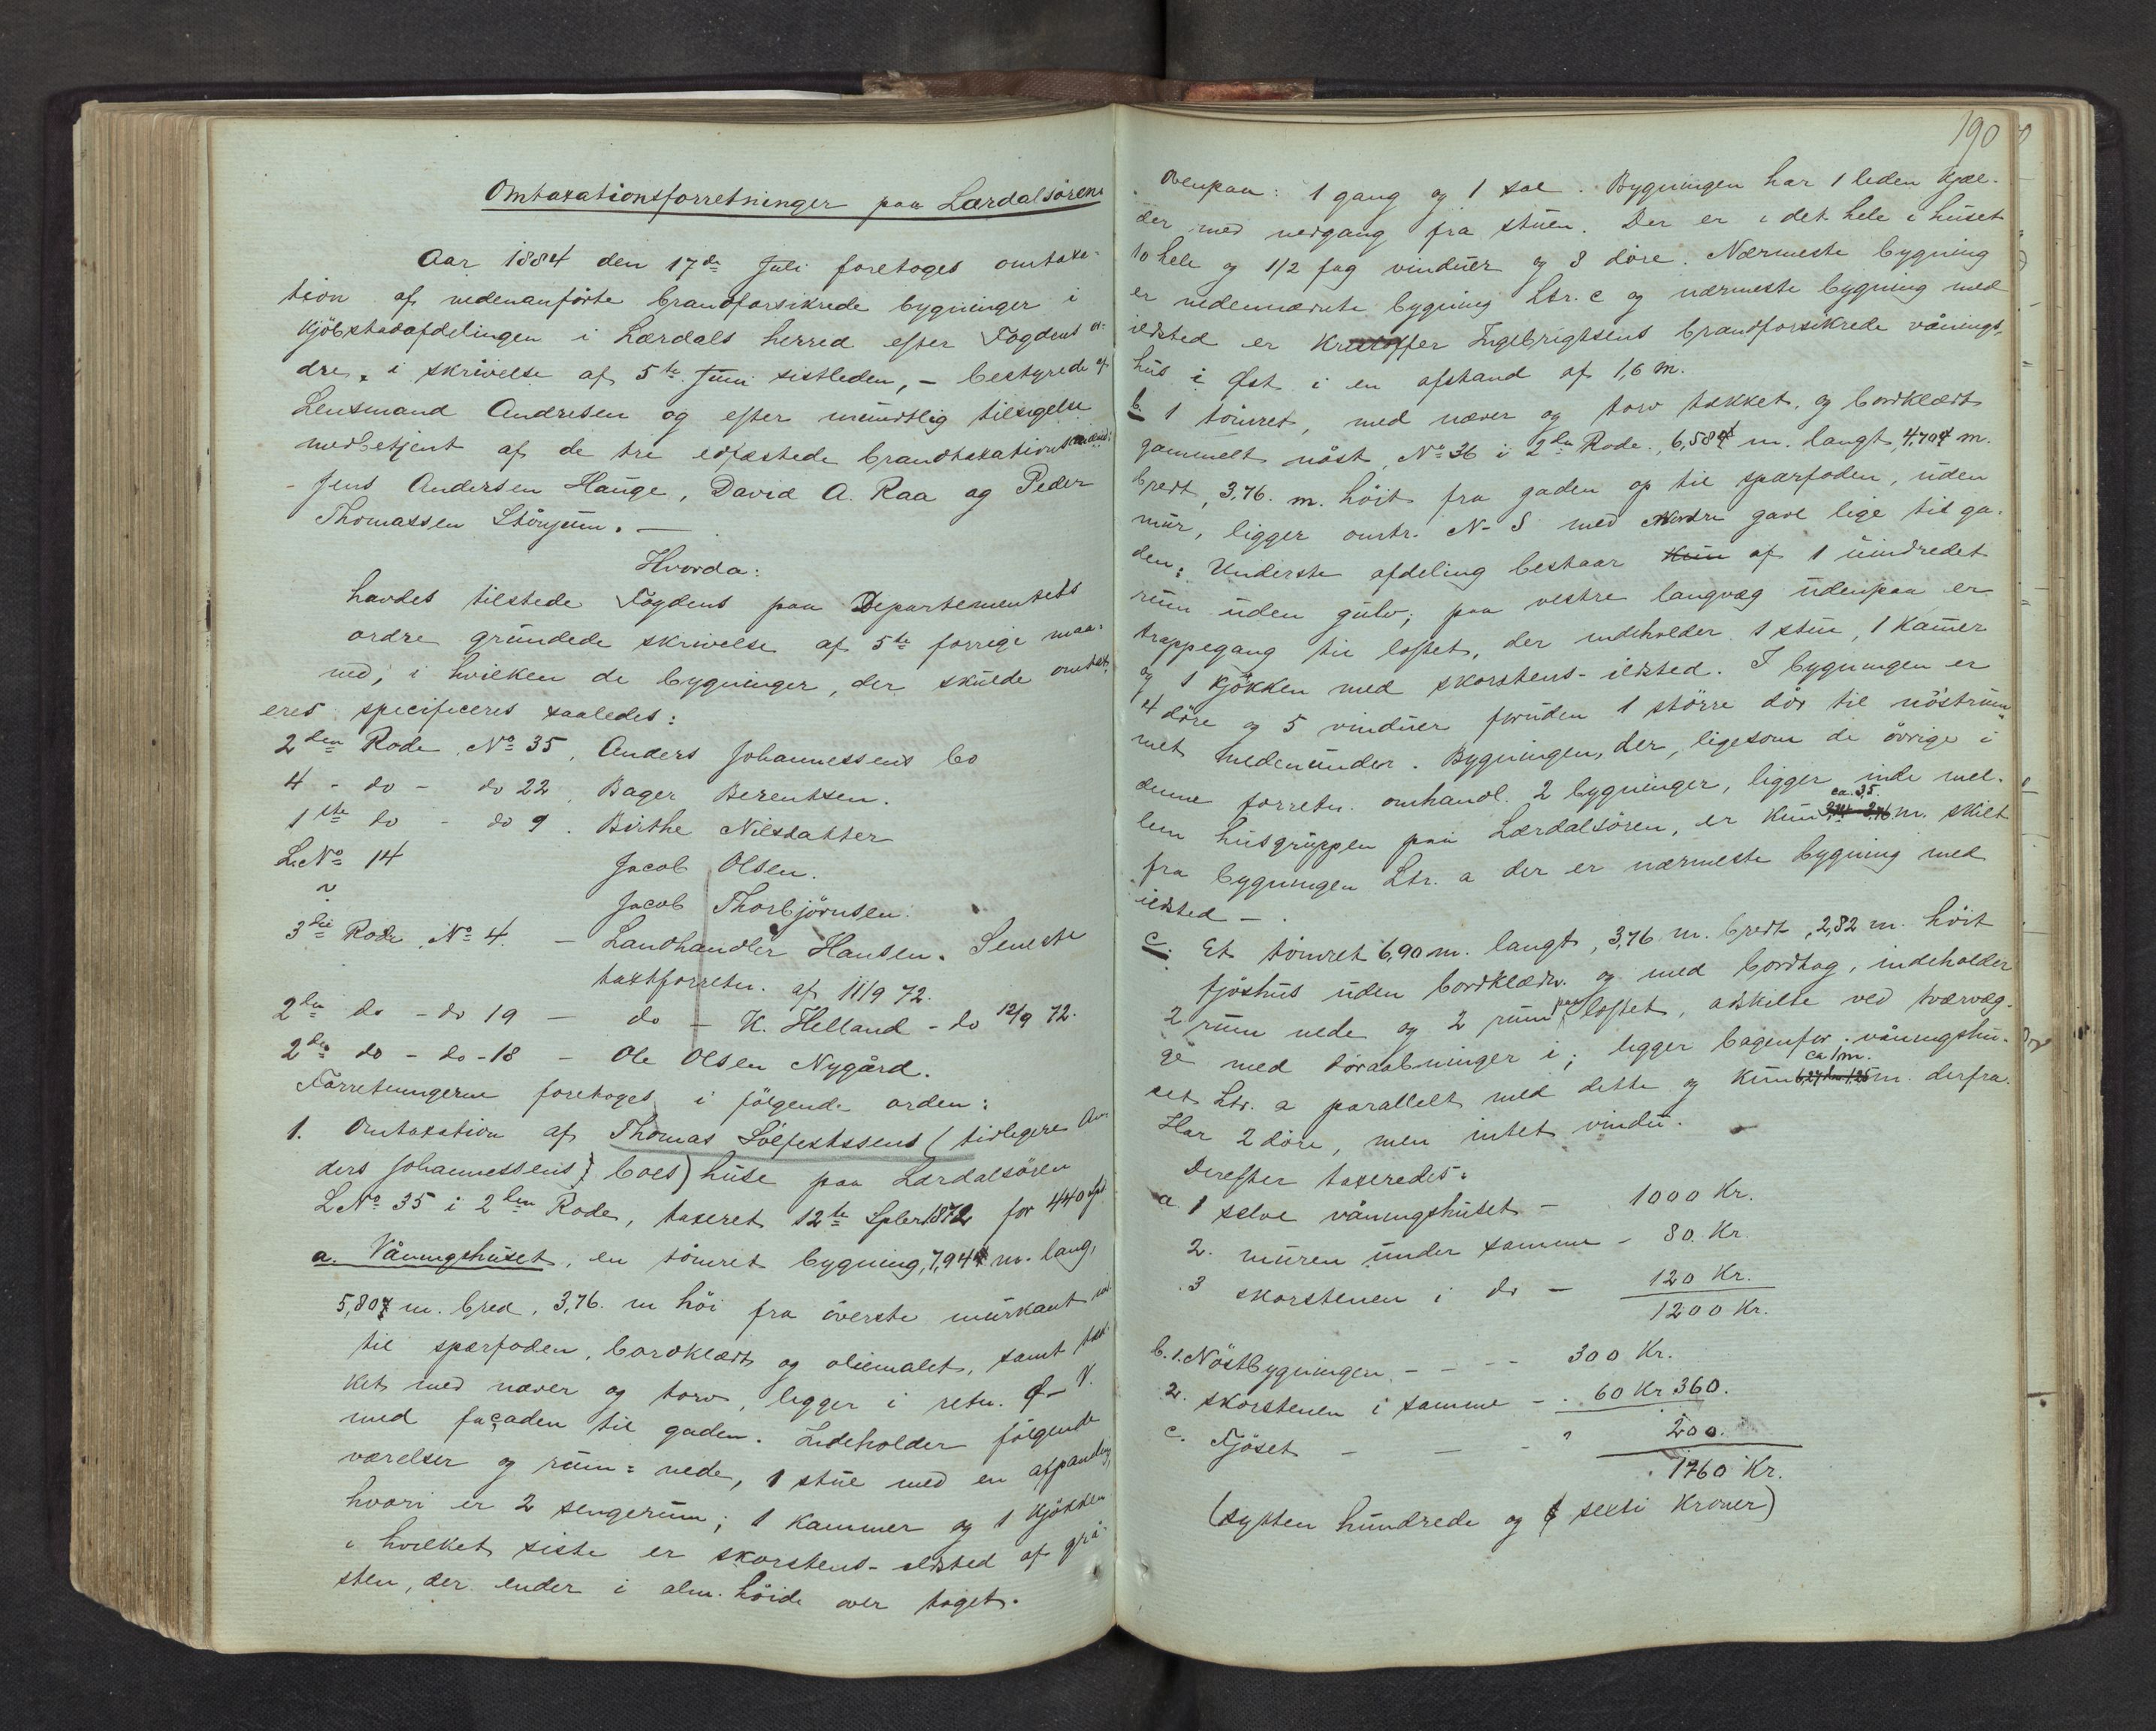 Omtaxationsforretninger paa Lærdalsören.
Aar 1884 den 17de Juli foretoges omtaxa-
tion af nedenanförte brandforsikrede bygninger i
Kjöbstadafdelingen i Lærdals herred efter Fogdens or-
dre, i skrivelse af 5te Juni sistleden, - bestyrede af
Lensmand Andresen og efter mundtlig tilsigelse
medbetjent af de tre edfæstede brandtaxationsmænd:
Jens Andersen Hauge, David A. Raa og Peder
Thomassen Stönjum. -
Hvorda:
havdes tilstede Fogdens paa Departementets
ordre grundede skrivelse af 5te forrige maa-
ned, i hvilken de bygninger, der skulde omtax-
eres specificeres saaledes:
2den Rode No 35, Anders Johannessens bo
4 - do - do 22, Bager Berentsen.
1ste do - do 9. Birthe Nilsdatter
L.No 14 Jacob Olsen.
~ Jacob Thorbjörnsen.
3die Rode No 4. - Landhandler Hansen. Seneste
taxtforretn. af 11/9 72.
2den do - do 19 - do - K. Helland - do 12/9 72.
2den do - do - 18 - Ole Olsen Nygård.
Forretningerne foretoges i fölgende orden:
1. Omtaxation af Thomas Sölfestssens (tidligere An-
ders Johannessens boes) huse paa Lærdalsören
LNo 35 i 2den Rode, taxeret 12te Septbr 1872 for 440 spd.
a. Våningshuset, en tömret bygning, 7,94 m. lang,
5,80 m. bred, 3,76. m höi fra överste murkant ind-
til sparfoden, bordklædt og oliemalet, samt tæk-
ket med næver og torv, ligger i retn. Ø-V.
med façaden til gaden. Indeholder fölgende
værelser og rum: nede, 1 stue med en afpanling,
hvori er 2 sengerum; 1 kammer og 1 kjökken
i hvilket siste er skorstens-ildsted af grå-
sten, der ender i alm. höide over taget.
190
Ovenpaa: 1 gang og 1 sal. Bygningen har 1 liden kjæl-
der med nedgang fra stuen. Der er i det hele i huset
10 hele og 1/2 fag vinduer og 8 döre. Nærmeste bygning
er nedennævnte bygning Ltr. c og nærmeste bygning med
ildsted er Kristoffer Ingebrigtsens brandforsikrede vånings-
hus i Øst i en afstand af 1,6 m.
b. 1 tömret, med næver og torv tækket, og bordklædt
gammelt nöst, No 36 i 2den Rode, 6,58 m. langt, 4,70 m.
bredt, 3,76. m. höit fra gaden op til sparfoden, uden
mur, ligger omtr. N-S med nordre gavl lige til ga-
den. Underste afdeling bestaar kun af 1 uindredet
rum uden gulv; paa vestre langvæg udenpaa er
trappegang til loftet, der indeholder 1 stue, 1 kamer
og 1 kjökken med skorstens-ildsted. I bygningen er
4 döre og 5 vinduer foruden 1 större dör til nöstrum-
met nedenunder. Bygningen, der, ligesom de övrige i
denne forretn. omhandl. 2 bygninger, ligger inde mel-
lem husgruppen paa Lærdalsören, er kun ca. 3,5. m. skilt
fra bygningen Ltr. a der er nærmeste bygning med
ildsted -.
c. Et tömret 6,90 m. langt, 3,76 m. bredt, 2,82 m. höit
fjöshus uden bordklædn. og med bordtag, indeholder
2 rum nede og 2 rum paa loftet, adskilte ved tværvæg-
ge med döraabninger i; ligger bagenfor våningshu-
set Ltr. a parallelt med dette og kun ca 1 m. derfra.
Har 2 döre, men intet vindu.
Derefter taxeredes:
a. 1 selve våningshuset - 1000 Kr.
2. muren under samme - 80. Kr.
3 skorstenen i do - 120 Kr.
1200 Kr.
b. 1. Nöstbygningen - - - 300 Kr.
2. skorstenen i samme - 60 Kr 360.
c. Fjöset - - - 200.
1760 Kr.
(sytten hundrede og sexti Kroner)